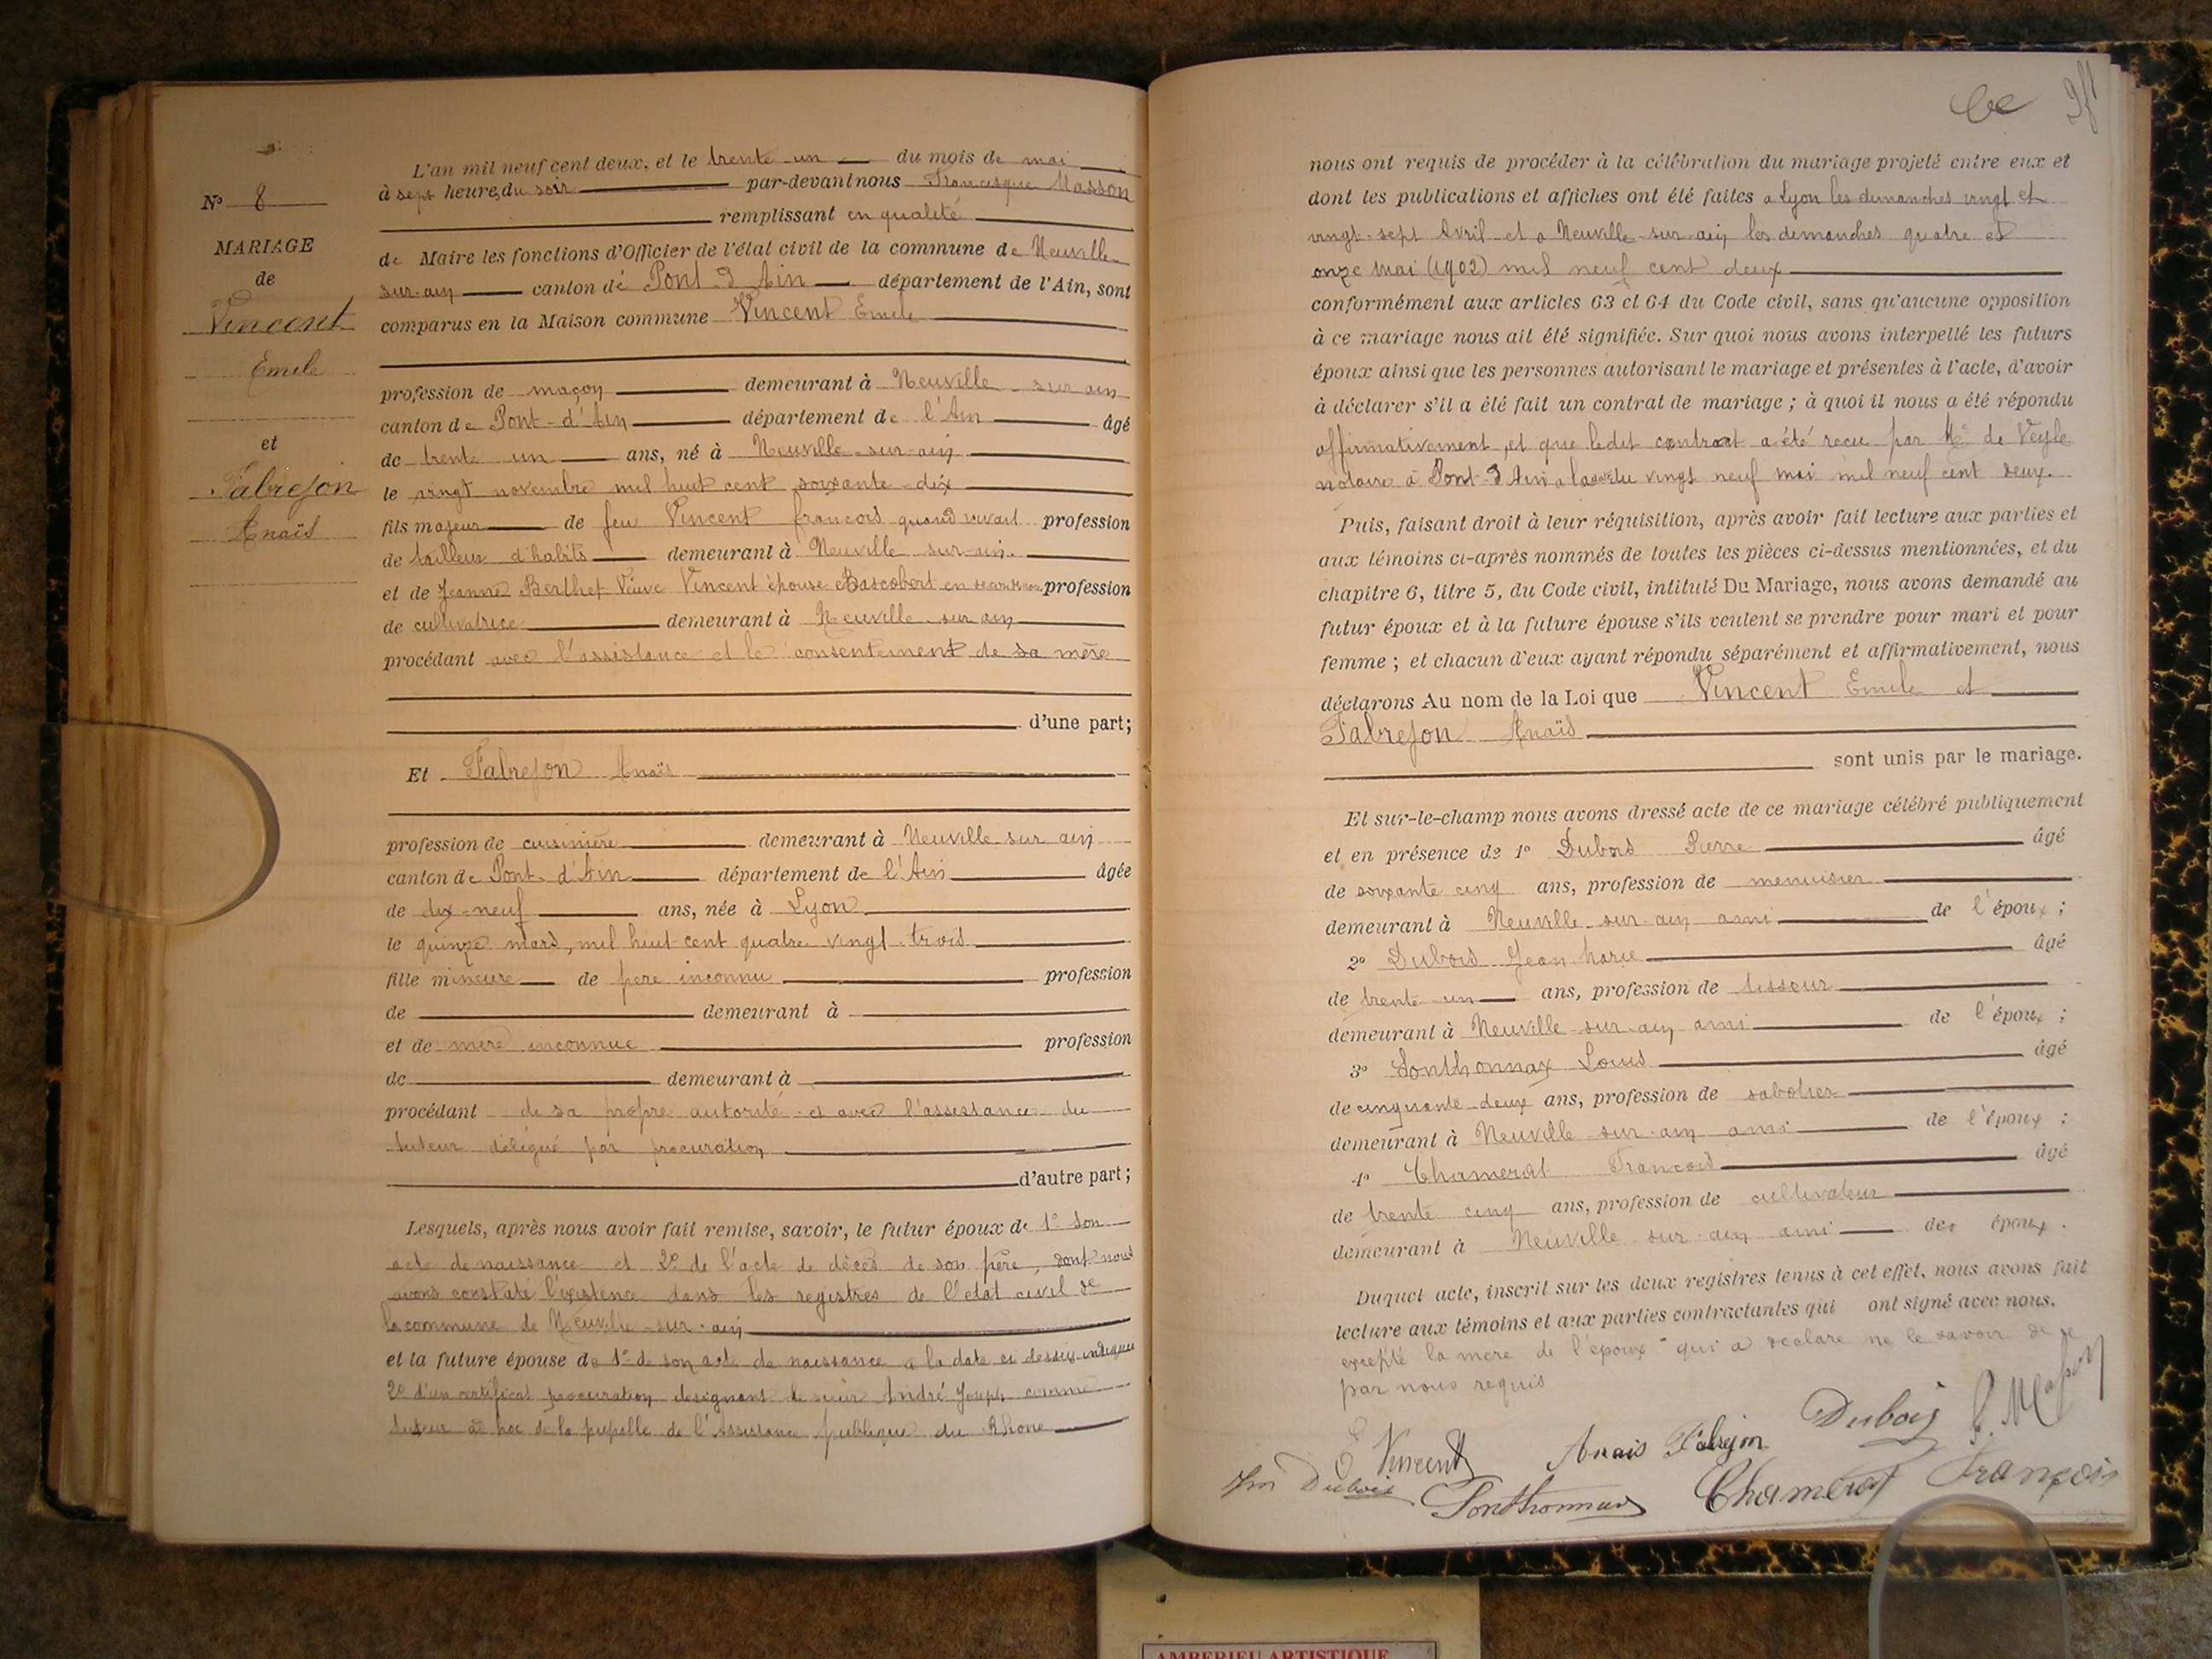 N° 8
MARIAGE
de
Vincent
Emile
et
Fabrejon
Anaïs
L'an mil neuf cent deux, et le trente-un du mois de mai
à sept heures du soir par-devant nous Francisque Masson
remplissant en qualité
de Maire les fonctions d'Officier de l'état civil de la commune de Neuville
sur-ain canton de Pont d'Ain département de l'Ain, sont
comparus en la Maison commune Vincent Emile
profession de maçon demeurant à Neuville sur ain
canton de Pont-d'Ain département de l'Ain âgé
de trente un ans, né à Neuville-sur-ain
le vingt novembre mil huit cent soixante-dix
fils majeur de feu Vincent francois quand vivait profession
de tailleur d'habits demeurant à Neuville sur-ain.
et de Jeanne Berthet Veuve Vincent épouse Bascobert en profession
de cultivatrice demeurant à Neuville sur ain
procédant avec l'assistance et le consentement de sa mère
d'une part;
Et Fabrejon Anaïs
profession de cuisinière demeurant à Neuville-sur ain
canton de Pont d'Ain département de l'Ain âgée
de dix-neuf ans, née à Lyon
le quinze mars, mil huit cent quatre vingt trois
fille mineure de père inconnu profession
de demeurant à
et de mère inconnue profession
de demeurant à
procédant de sa propre autorité et avec l'assistance du
tuteur délégué par procuration
d'autre part;
Lesquels, après nous avoir fait remise, savoir, le futur époux de 1° Son
acte de naissance et 2° de l'acte de décès de son père, dont nous
avons constaté l'existence dans les registres de l'état civil de
la commune de Neuville-sur-ain
et la future épouse de 1° de son acte de naissance a la date ci dessus indiquée
2° d'un certificat procuration designant le sieur André Joseph comme
tuteur ad hoc de la pupille de l'Assistance publique du Rhône
nous ont requis de procéder à la célébration du mariage projeté entre eux et
dont les publications et affiches ont été faites a Lyon les dimanches vingt et
vingt-sept Avril et a Neuville-sur-ain les dimanches quatre et
onze Mai (1902) mil neuf cent deux
conformément aux articles 63 et 64 du Code civil, sans qu'aucune opposition
à ce mariage nous ait été signifiée. Sur quoi nous avons interpellé les futurs
époux ainsi que les personnes autorisant le mariage et présentes à l'acte, d'avoir
à déclarer s'il a été fait un contrat de mariage ; à quoi il nous a été répondu
affirmativement, et que ledit contrat a été recu par Me de Veyle
notaire à Pont d'Ain a la date du vingt neuf mai mil neuf cent deux.
Puis, faisant droit à leur réquisition, après avoir fait lecture aux parties et
aux témoins ci-après nommés de toutes les pièces ci-dessus mentionnées, et du
chapitre 6, titre 5, du Code civil, intitulé Du Mariage, nous avons demandé au
futur époux et à la future épouse s'ils veulent se prendre pour mari et pour
femme ; et chacun d'eux ayant répondu séparément et affirmativement, nous
déclarons Au nom de la Loi que Vincent Emile et
Fabrejon Anaïs
sont unis par le mariage.
Et sur-le-champ nous avons dressé acte de ce mariage célébré publiquement
et en présence de 1° Dubois Pierre âgé
de soixante cinq ans, profession de menuisier
demeurant à Neuville-sur-ain ami de l'époux ;
2° Dubois Jean Marie âgé
de trente-un ans, profession de tisseur
demeurant à Neuville-sur-ain ami de l'époux ;
3° Sonthonnax Louis âgé
de cinquante-deux ans, profession de sabotier
demeurant à Neuville-sur-ain ami de l'époux ;
4° Chamerat Francois âgé
de trente cinq ans, profession de cultivateur
demeurant à Neuville sur-ain ami des époux.
Duquel acte, inscrit sur les deux registres tenus à cet effet, nous avons fait
lecture aux témoins et aux parties contractantes qui ont signé avec nous.
excepté la mère de l'époux qui a déclaré ne le savoir de ce
par nous requis
E Vincent Anais Fabrejon Dubois F. Masson
Jm Dubois Sonthonnax Chamerat François
AMBERIEU ARTISTIQUE